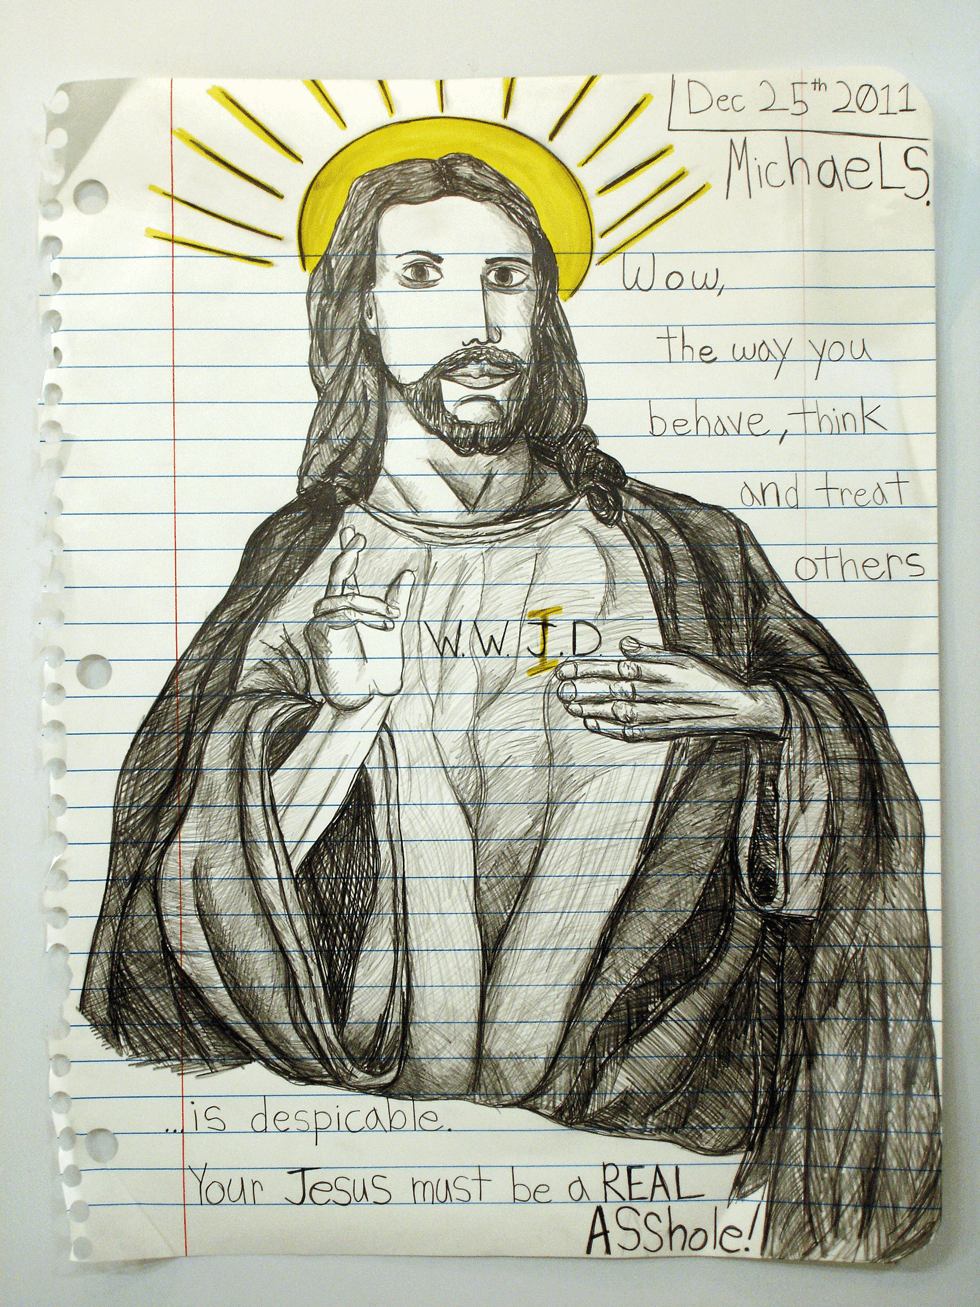 Dec 25th 2011
MichaeL S.
Wow,
the way you
behave, think
and treat
others
W.W.J.D
...is despicable.
Your Jesus must be a REAL
ASShole!